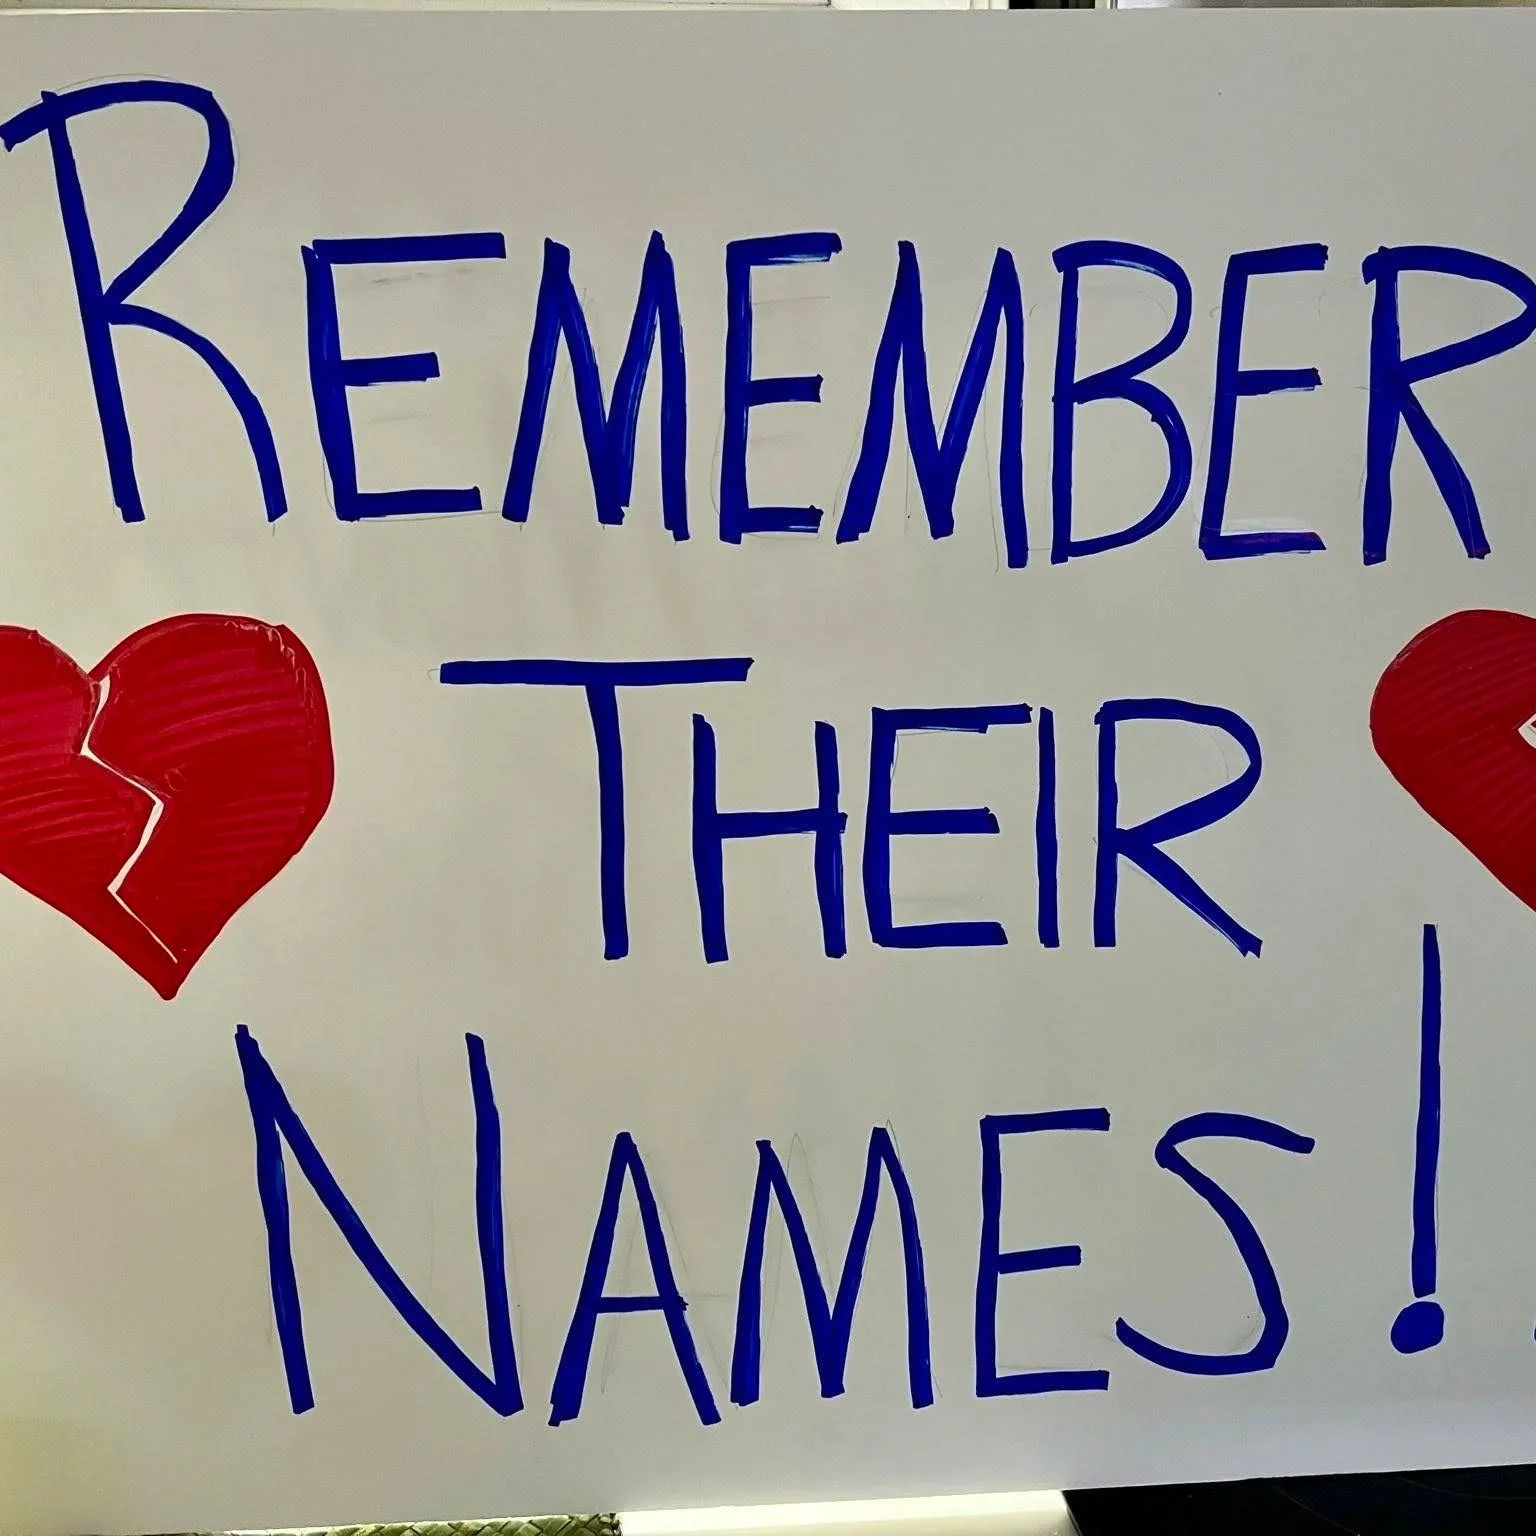 REMEMBER
THEIR
NAMES!